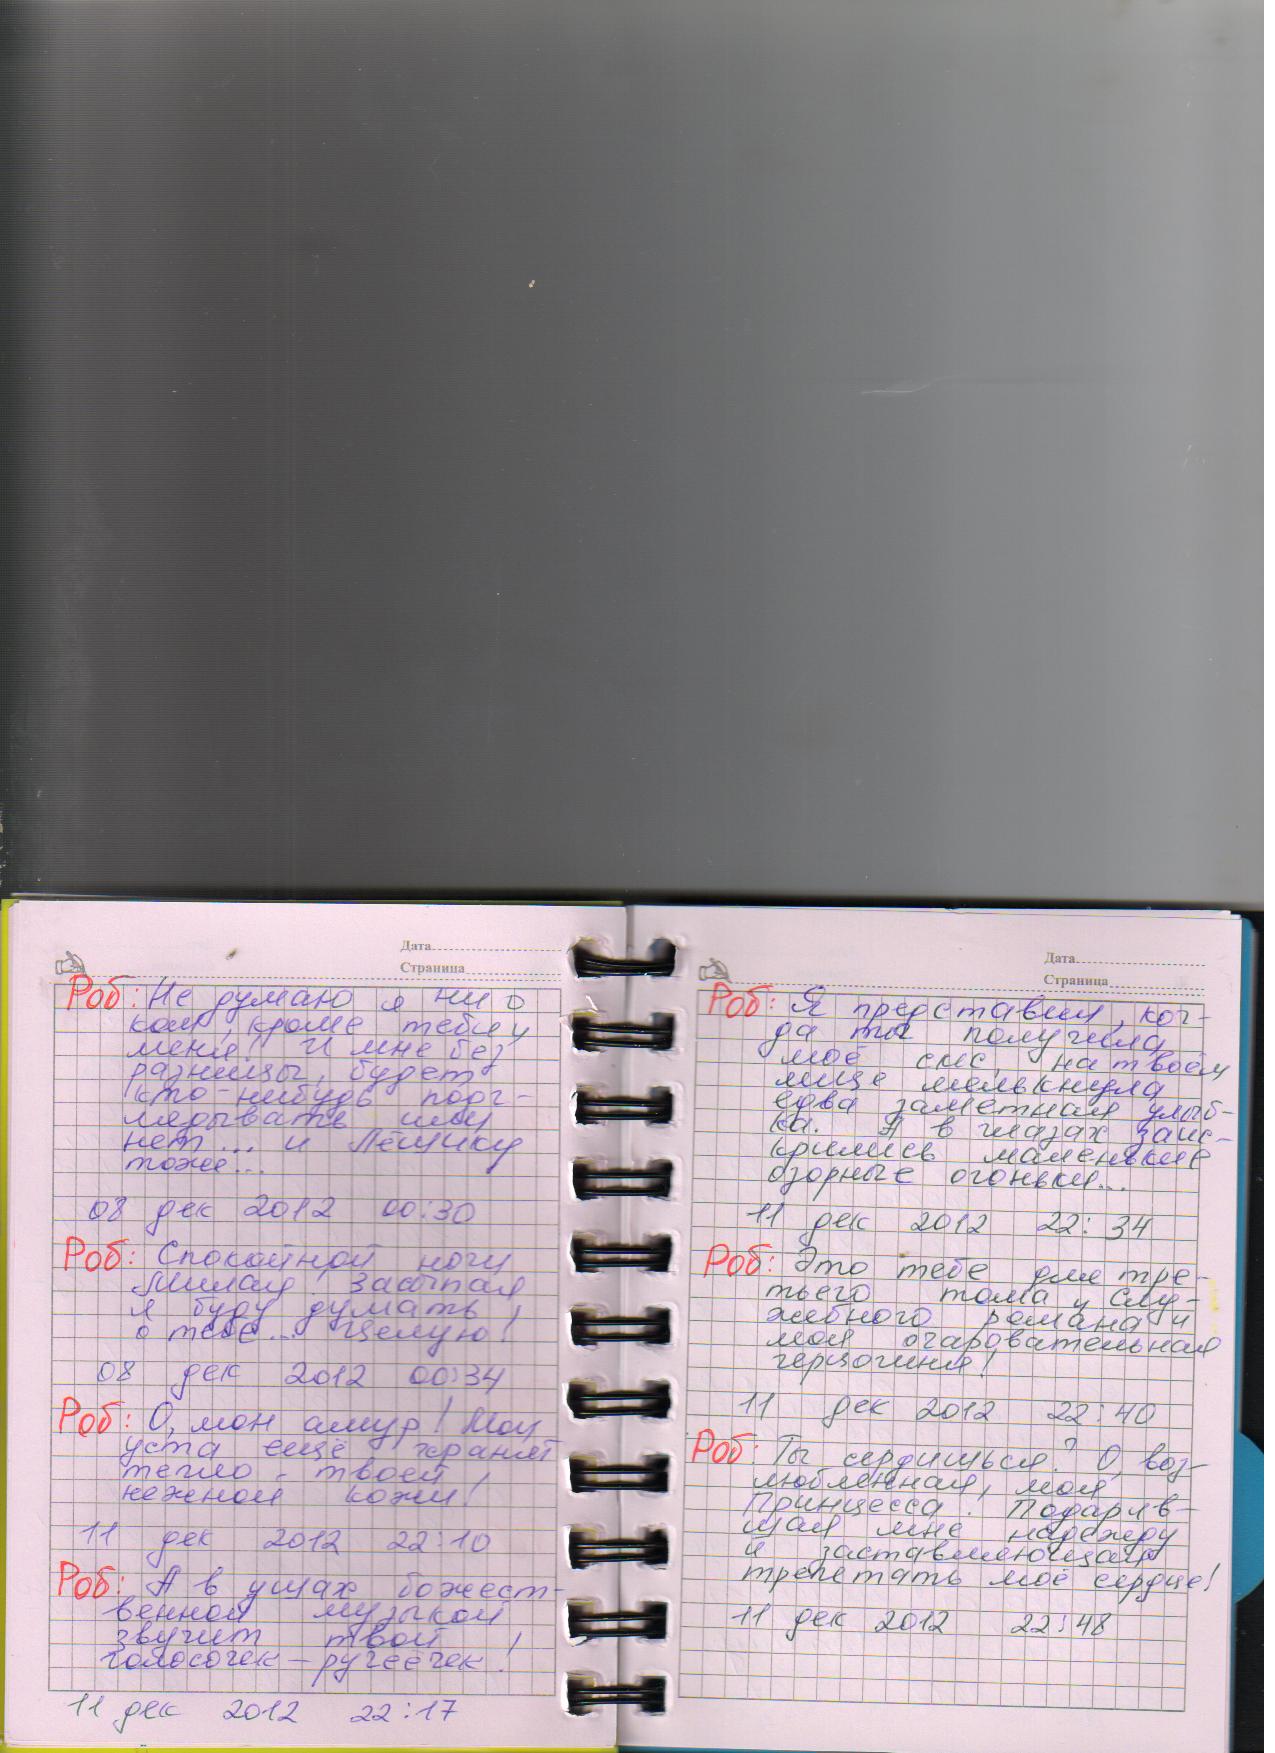 Дата
Страница
Роб: Не думаю я ни о
ком, кроме тебя и
меня! И мне без
разницы, будет
кто-нибудь подг-
лядывать или
нет... и Лёщику
тоже...
08 дек 2012 00:30
Роб: Спокойной ночи
Милая! Засыпая
я буду думать
о тебе... Целую!
08 дек 2012 00:34
Роб: О, мон амур! Мои
уста ещё хранят
тепло - твоей
нежной кожи!
11 дек 2012 22:10
Роб: А в ушах божест-
венной музыкой
звучит твой
голосочек - ручеёчек!
11 дек 2012 22:17
Дата
Страница
Роб: Я представил, ког-
да ты получила
моё смс, на твоём
лице мелькнула
едва заметная улыб-
ка. А в глазах заис-
крились маленькие
озорные огоньки...
11 дек 2012 22:34
Роб: Это тебе для тре-
тьего тома и Слу-
жебного романа и
моя очаровательная
герцогиня!
11 дек 2012 22:40
Роб: Ты сердишься? О, воз-
любленная, моя
Принцесса. Подарив-
шая мне надежду
и заставляющая
трепетать моё сердце!
11 дек 2012 22:48